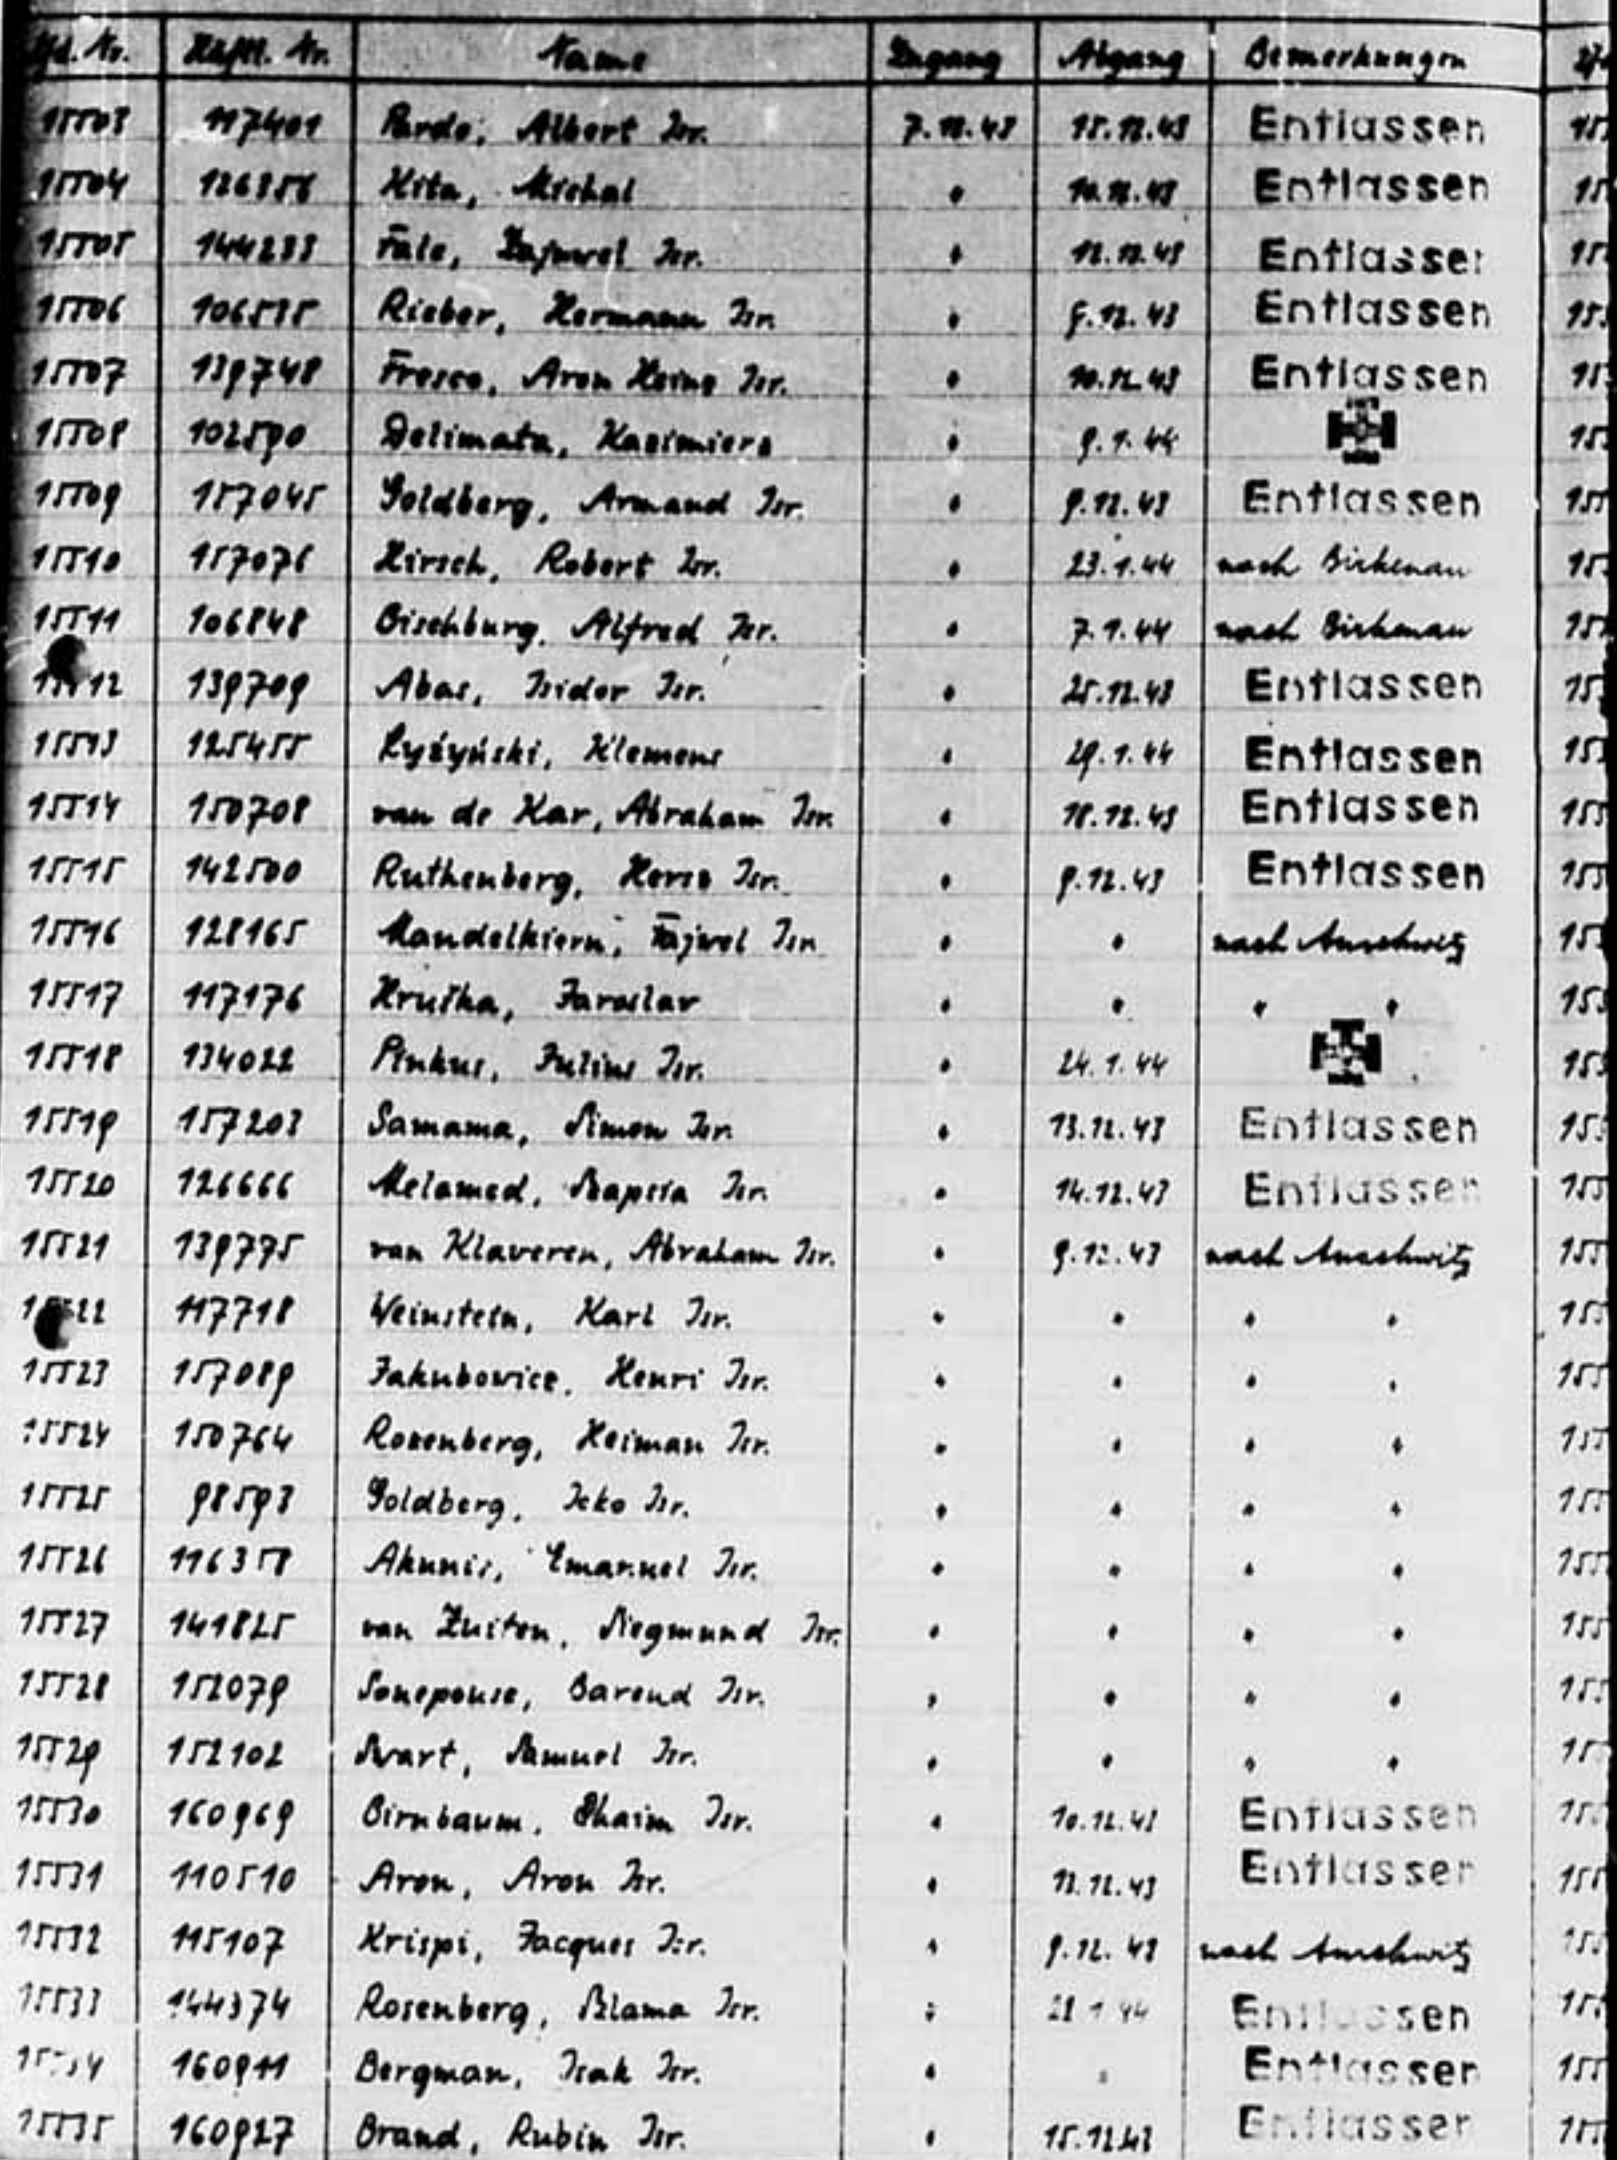 Lfd. Nr. Häftl. Nr. Name Zugang Abgang Bemerkungen
15503 117401 Pardo, Albert Isr. 7.12.43 15.12.43 Entlassen
15504 126356 Kita, Michal " 10.12.43 Entlassen
15505 144233 Isr. " 12.12.43 Entlassen
15506 106535 Rieber, Hermann Isr. " Entlassen
15507 139748 Fresco, Aron Heinz Isr. " 10.12.43 Entlassen
15508 102590 Delimata, Kazimierz " 9.1.44
15509 157045 Goldberg, Armand Isr. " 9.12.43 Entlassen
15510 157076 Hirsch, Robert Isr. " 23.1.44 nach Birkenau
15511 106848 Bischburg, Alfred Isr. " 7.1.44 nach Birkenau
15512 139709 Abas, Isidor Isr. " 25.12.43 Entlassen
15513 125455 Ryżyński, Klemens " 29.1.44 Entlassen
15514 150708 van de Kar, Abraham Isr. " 18.12.43 Entlassen
15515 142500 Ruthenberg, Isr. " 9.12.43 Entlassen
15516 128165 Mandelkiern, Fajwel Isr. " " nach Auschwitz
15517 117176 Hruška, Jaroslav " " " "
15518 134022 Pinkus, Julius Isr. " 24.1.44
15519 157203 Samama, Simon Isr. " 13.12.43 Entlassen
15520 126666 Melamed, Szapsia Isr. " 14.12.43 Entlassen
15521 139775 van Klaveren, Abraham Isr. " 9.12.43 nach Auschwitz
15522 117718 Weinstein, Karl Isr. " " " "
15523 157089 Jakubowicz, Henri Isr. " " " "
15524 150764 Rozenberg, Heiman Isr. " " " "
15525 98593 Goldberg, Icko Isr. " " " "
15526 116358 Akunis, Emanuel Isr. " " " "
15527 141825 van Zuiten, Siegmund Isr. " " " "
15528 152079 Sonepouse, Barend Isr. " " " "
15529 152102 Swart, Samuel Isr. " " " "
15530 160969 Birnbaum, Chaim Isr. " 10.12.43 Entlassen
15531 110510 Aron, Aron Isr. " 12.12.43 Entlassen
15532 115107 Krispi, Jacques Isr. " 9.12.43 nach Auschwitz
15533 144374 Rosenberg, Szlama Isr. " 28.1.44 Entlassen
15534 160911 Bergman, Isak Isr. " " Entlassen
15535 160927 Brand, Rubin Isr. " 15.12.43 Entlassen